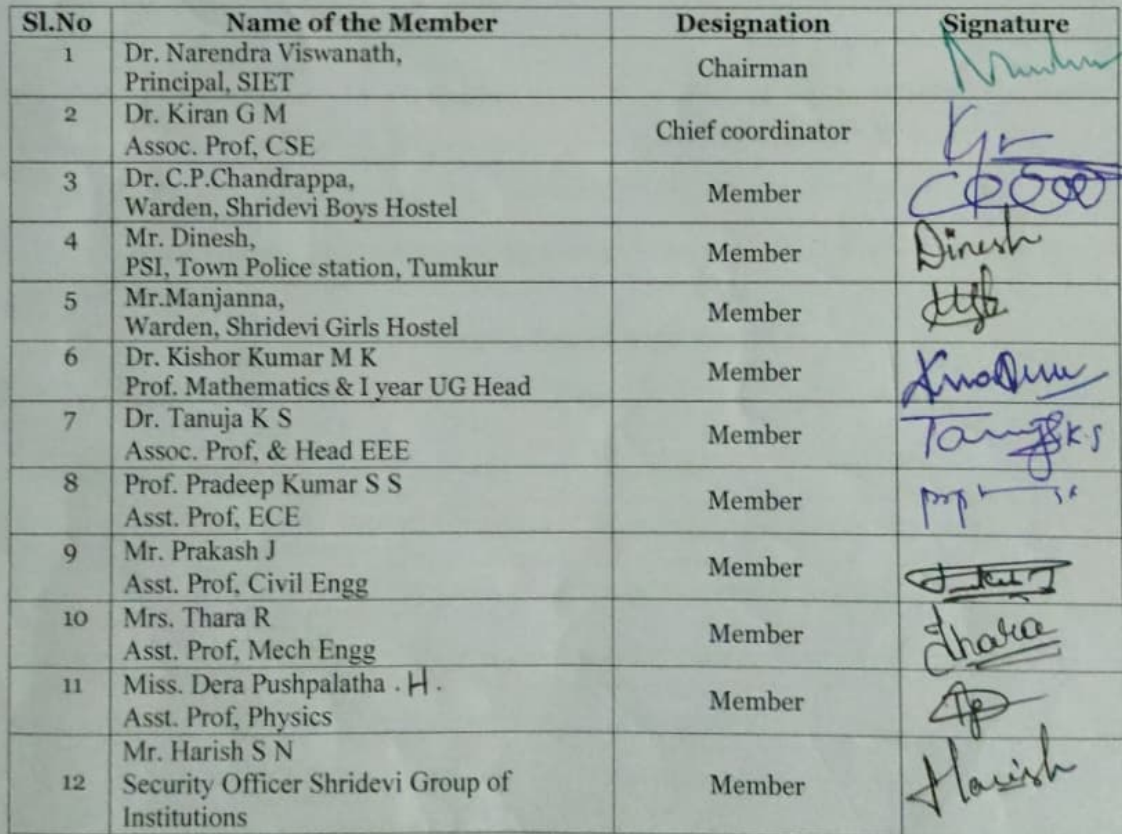 Sl.No Name of the Member Designation Signature
1 Dr. Narendra Viswanath,
Principal, SIET Chairman
2 Dr. Kiran G M
Assoc. Prof, CSE Chief coordinator
3 Dr. C.P.Chandrappa,
Warden, Shridevi Boys Hostel Member
4 Mr. Dinesh,
PSI, Town Police station, Tumkur Member Dinesh
5 Mr.Manjanna,
Warden, Shridevi Girls Hostel Member
6 Dr. Kishor Kumar M K
Prof. Mathematics & I year UG Head Member
7 Dr. Tanuja K S
Assoc. Prof, & Head EEE Member Tanuja K S
8 Prof. Pradeep Kumar S S
Asst. Prof, ECE Member
9 Mr. Prakash J
Asst. Prof, Civil Engg Member
10 Mrs. Thara R
Asst. Prof, Mech Engg Member Thara
11 Miss. Dera Pushpalatha . H .
Asst. Prof, Physics Member
12 Mr. Harish S N
Security Officer Shridevi Group of
Institutions Member Harish